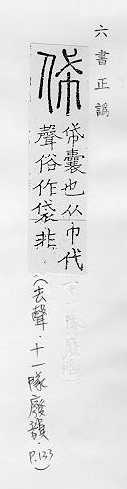 六書正譌
帒囊也从巾代
聲俗作袋非
(去聲．十一隊廢韻 P.133)